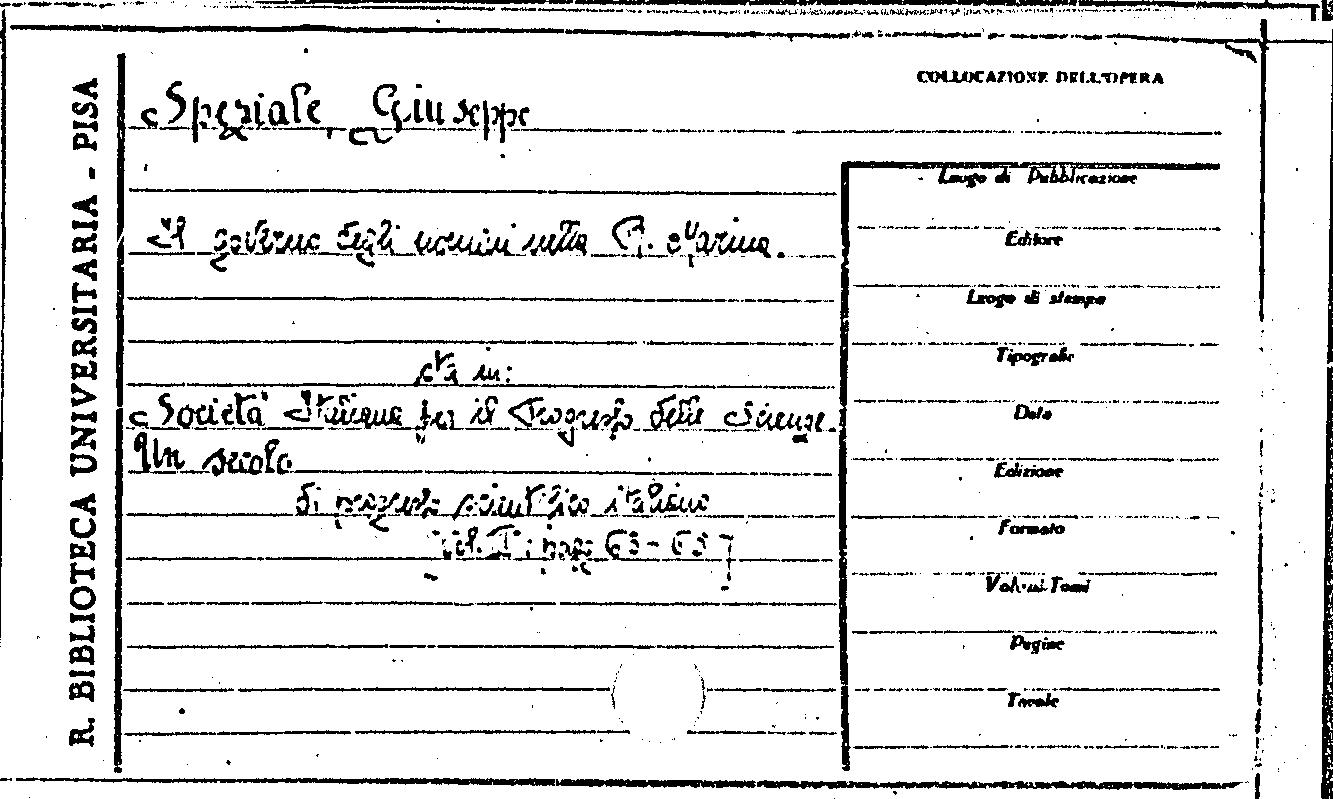 R. BIBLIOTECA UNIVERSITARIA - PISA
COLLOCAZIONE DELL'OPERA
Speziale, Giuseppe
Il governo degli uomini nella R. Marina.
sta in:
Società Italiana per il Progresso delle Scienze.
Un secolo
di progresso scientifico italiano
vol. I; pag.
Luogo di Pubblicazione
Editore
Luogo di stampa
Tipografia
Data
Edizione
Formato
Volumi-Tomi
Pagine
Tavole